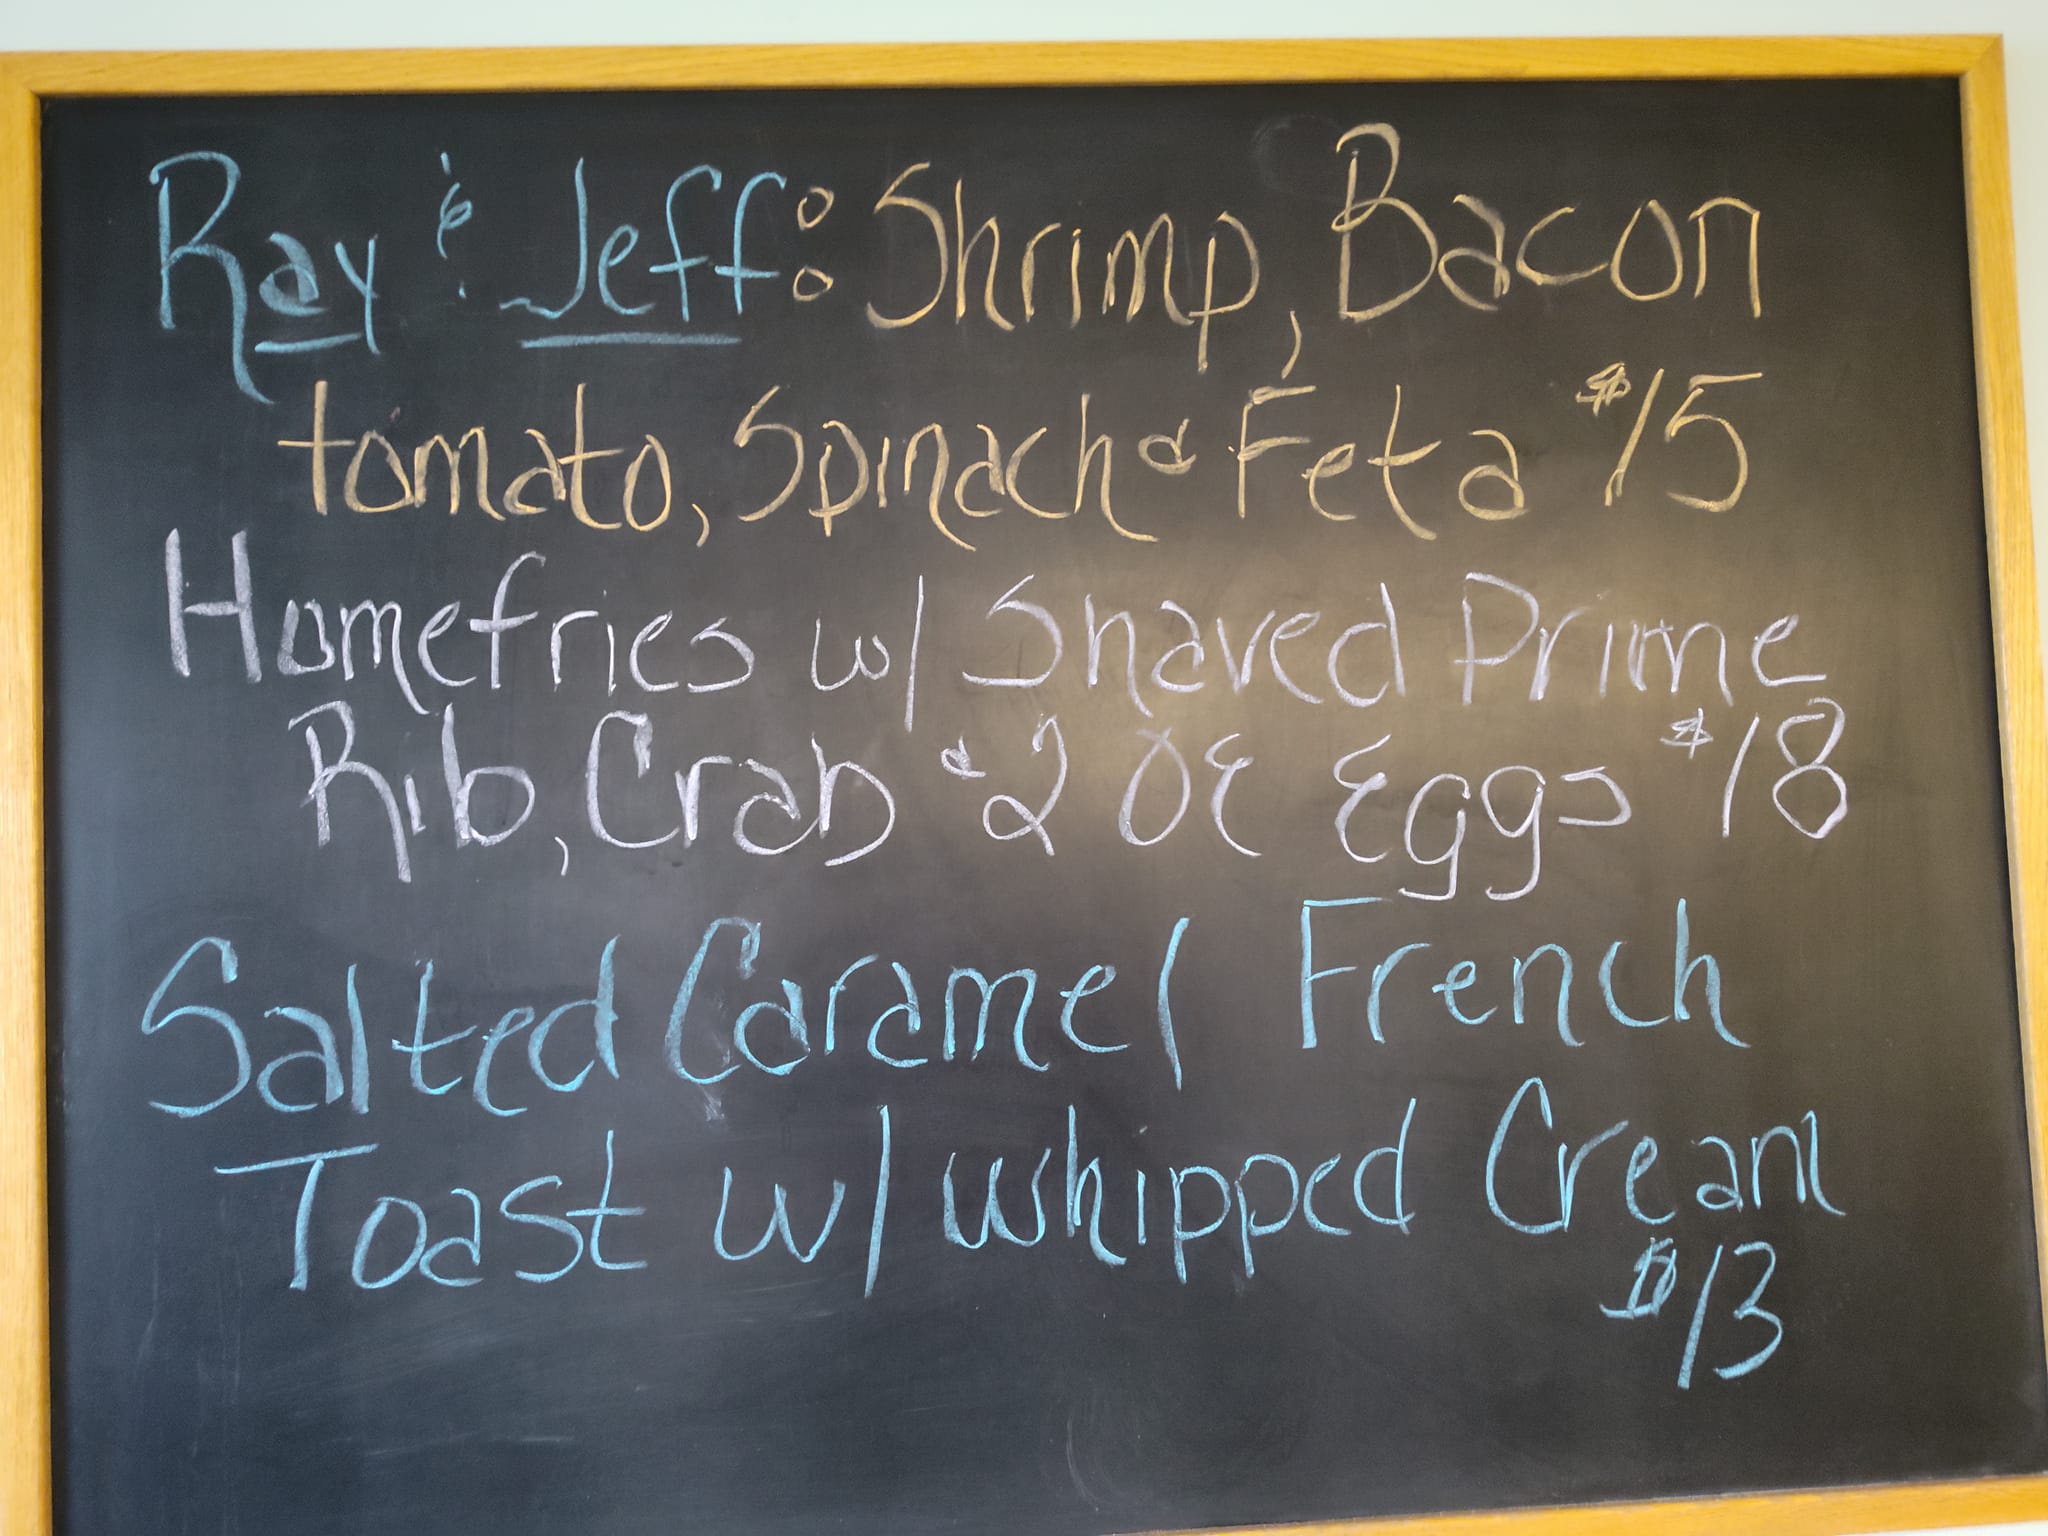 Ray & Jeff: Shrimp, Bacon
tomato, Spinach & Feta $15
Homefries w/ Shaved Prime
Rib, Crab & 2 OE Eggs $18
Salted Caramel French
Toast w/ whipped Cream
$13